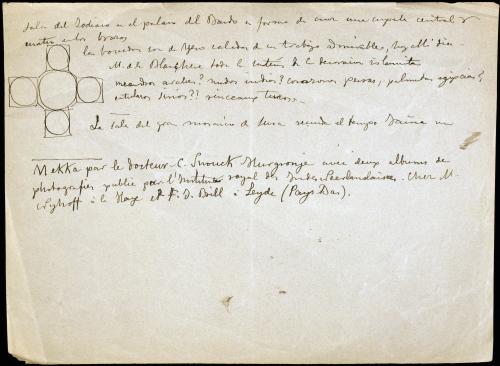 Sala del Zodiaco en el palacio del Bardo en forma de cruz una cupula central y
cuatro en los brazos
las bovedas son de Yeso calados de un trabajo admirable,
M. de la Blanchère toda la decoracion islamita
meandros arabes? nudos indios? corazones persas, palmetas egipcias?
sirios?? rinceaux turcos.
La Sala del gran mosaico de Susa recuerda el tiempo un
Mekka par le docteur C. Snouck Hurgronje avec deux albums de
photografies publié par l'Institut royal des Indes Neerlandaises. Chez M.
Nyhoff à la Haye et E. J. Brill à Leyde (Pays Bas).